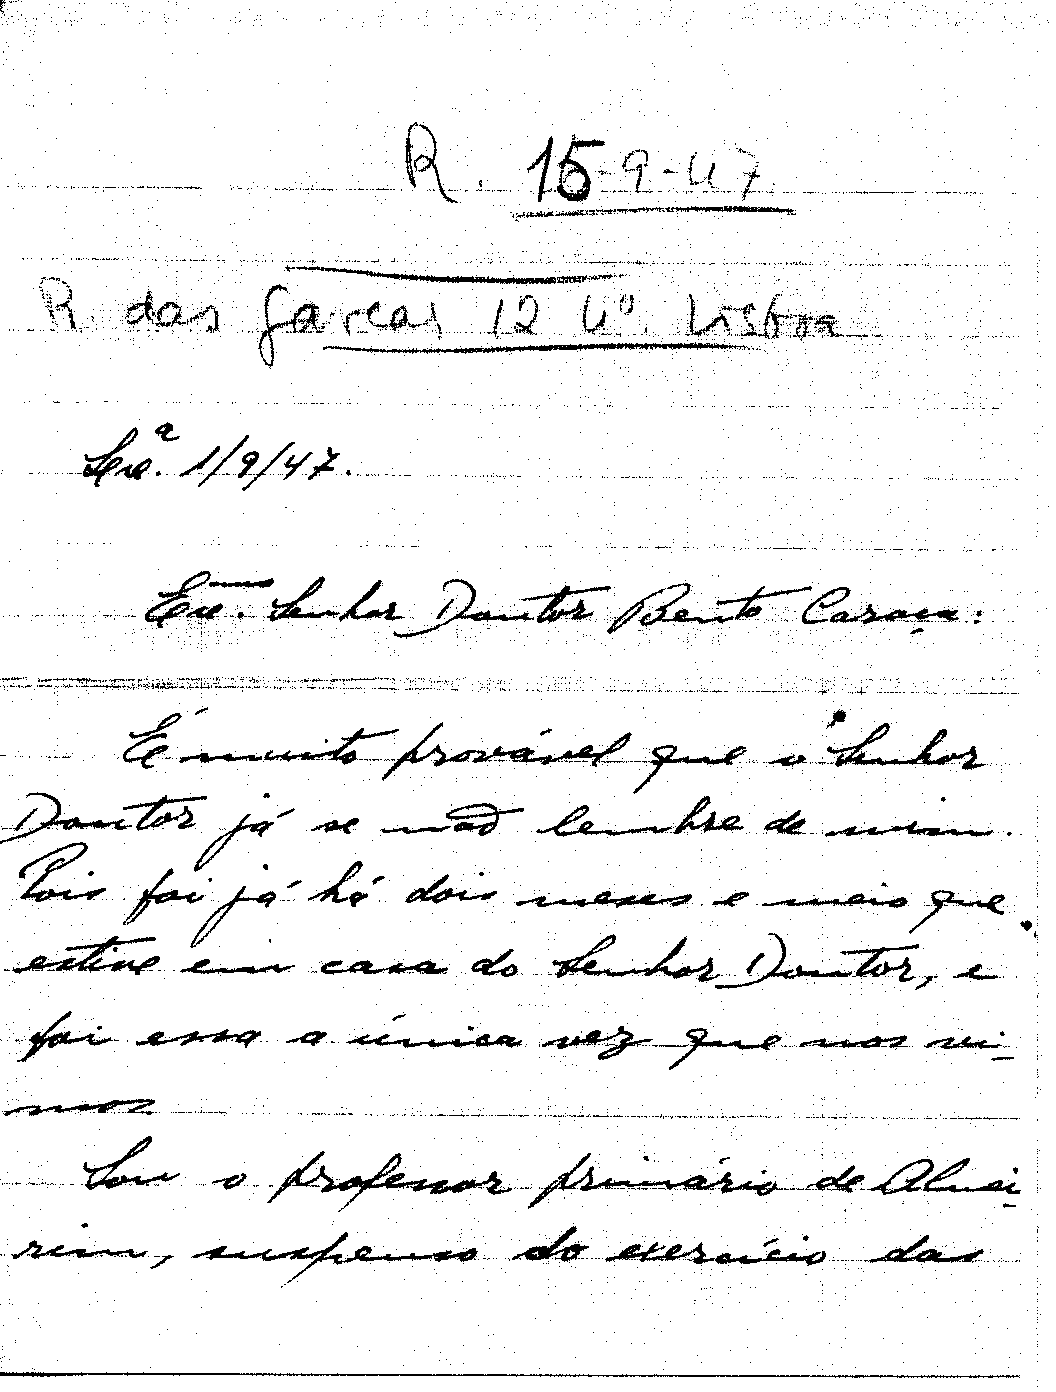 R. 15-9-47
R. das Garças 12 4º. Lisboa
1/9/47.
Exmo. Senhor Doutor Bento Caraça:
É muito provável que o Senhor
Doutor já se não lembre de mim.
Pois foi já há dois meses e meio que
estive em casa do Senhor Doutor, e
foi essa a única vez que nos vi-
mos
Sou o professor primário de Almei-
rim, suspenso do exercício das